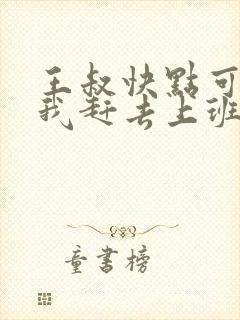 王叔快點可
我赶去上班
童書榜